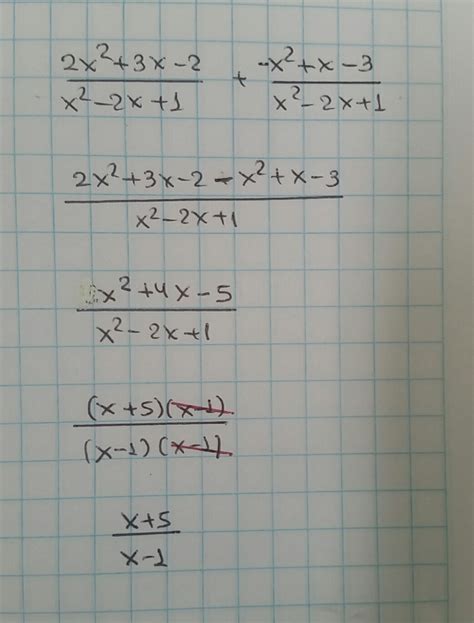 2x²+3x-2 / x²-2x+1 + -x²+x-3 / x²-2x+1
2x²+3x-2-x²+x-3 / x²-2x+1
x²+4x-5 / x²-2x+1
(x+5)(x-1) / (x-1)(x-1)
x+5 / x-1